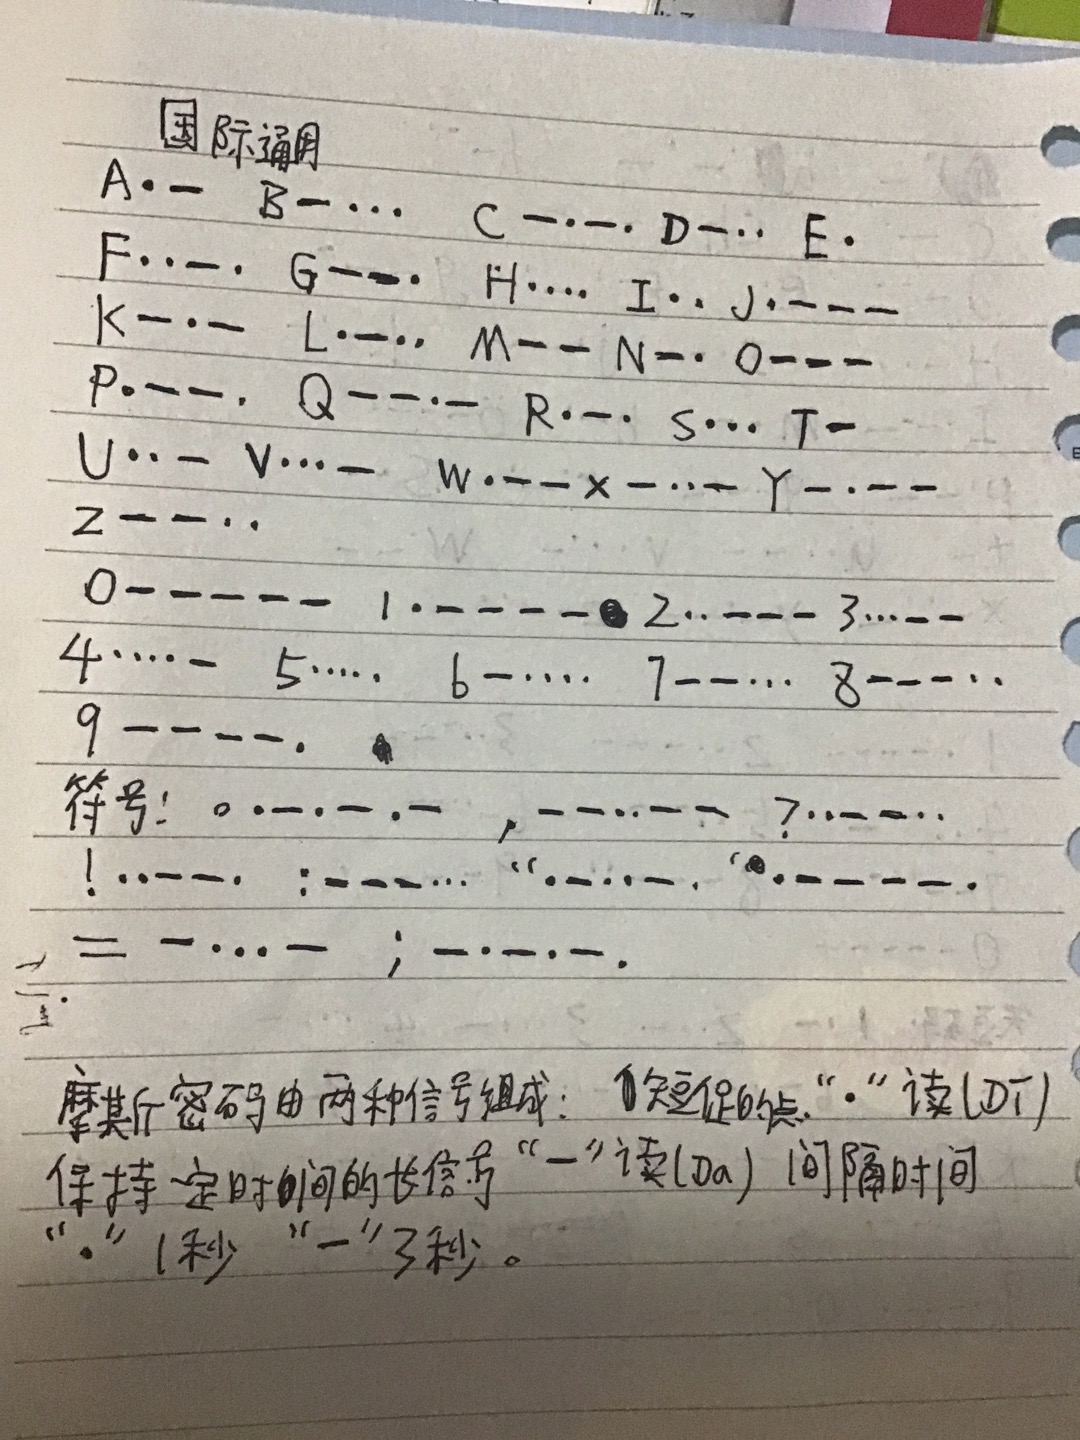 国际通用
A·— B—··· C—·—· D—·· E·
F··—· G——· H···· I·· J·———
K—·— L·—·· M—— N—· O———
P·——· Q——·— R·—· S··· T—
U··— V···— W·—— X—··— Y—·——
Z——··
0————— 1·———— 2··——— 3···——
4····— 5····· 6—···· 7——··· 8———··
9————·
符号! 。·—·—·— ,——··—— ?··——··
!··——· :———··· “·—··—· ‘·————·
= —···— ;—·—·—·
摩斯密码由两种信号组成: 1短促的点.“·”读(DI)
保持一定时间的长信号“—”读(Da) 间隔时间
“·”1秒 “—”3秒。